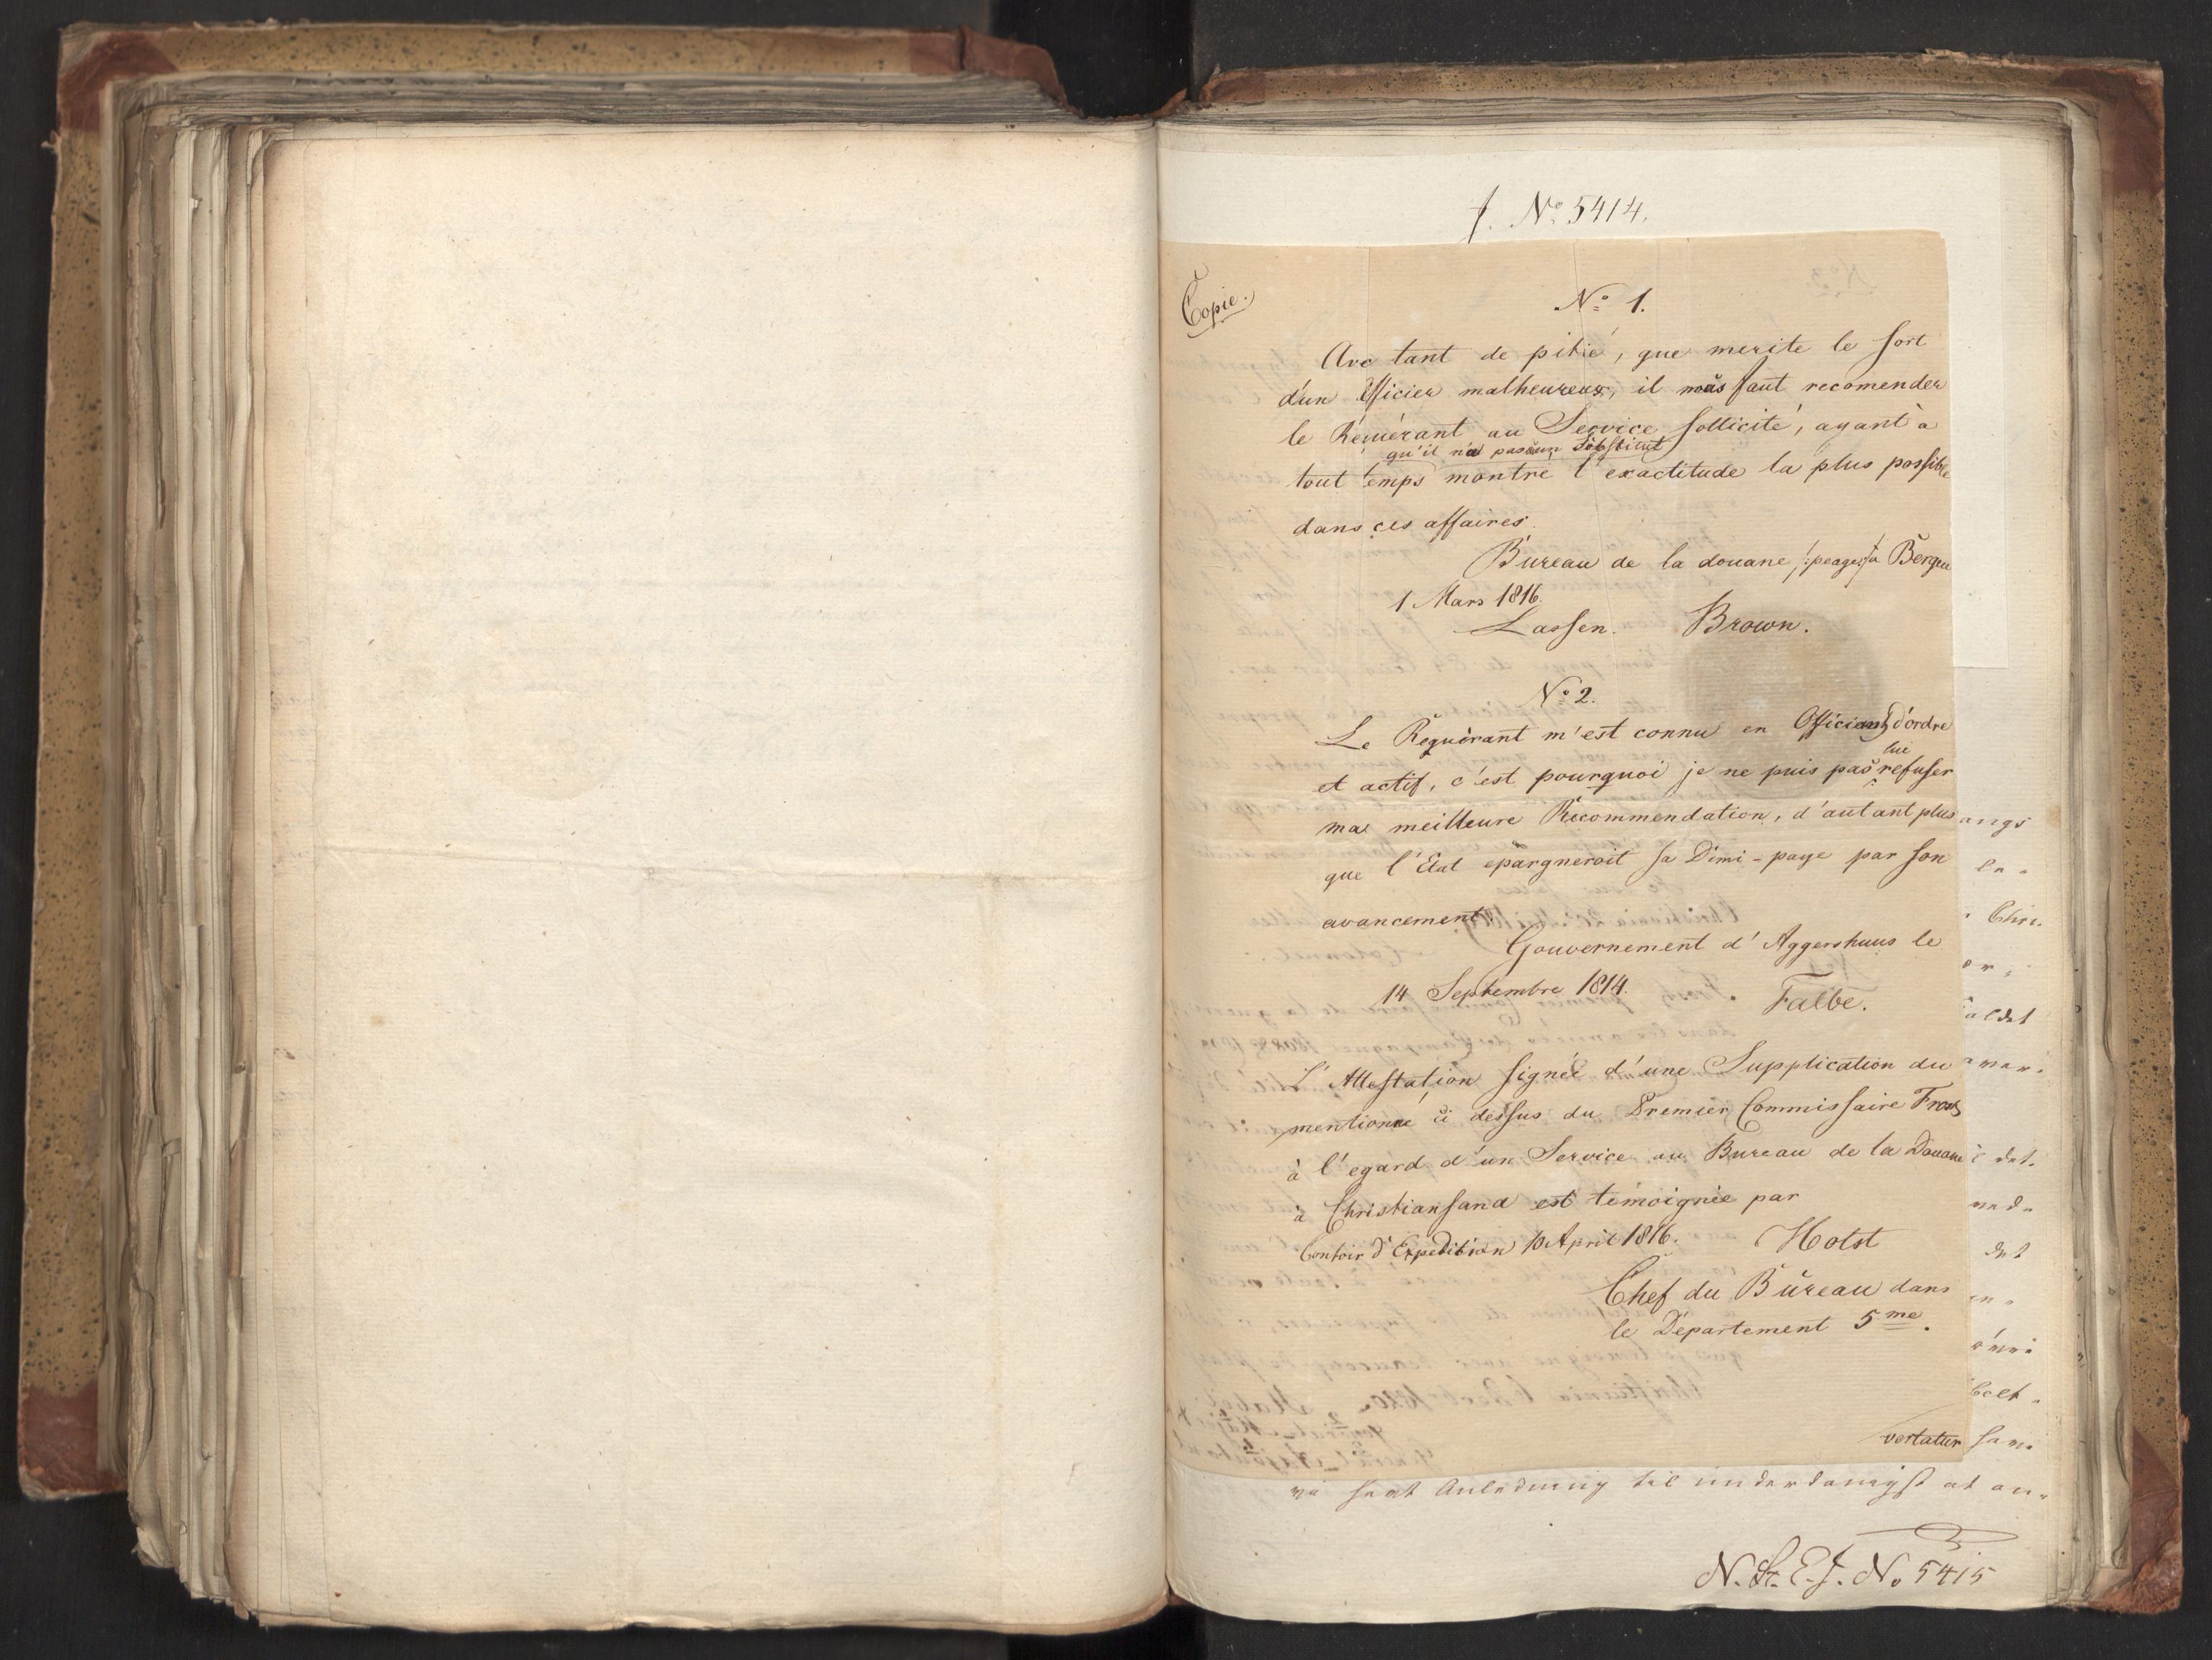 f. No 5414.
Copie.
No 1.
Avc tant de pitié, que merite le sort
d'un Officier malheureux, il nous faut recomender
le Réquérant au Service sollicité, ayant à
qu'il n'a pas un Substitut
tout temps montré l'exactitude la plus possible
dans ces affaires.
Bureau de la douane /:peages:/ à Bergen
1 Mars 1816.
Lassen. Brown.
No 2.
Le Requèrant m'est connu en Officiant d'ordre
lui
et actif, c'est pourquoi je ne puis pas refuser
ma meilleure Recommendation, d'autant plus
que l'Etat epargneroit sa Demi-paye par son
avancement.
Gouvernement d'Aggershuus le
14 Septembre 1814.
Falbe.
L'Attestation signée d'une Supplication du
mentionné ci dessus du Premier Commissaire Frost
à l'egard d'un Service au Bureau de la Douane
à Christiansand est temoignée par
Contoir d'Expedition 10 April 1816. Holst
Chef du Bureau dans
le Departement 5me.
vertatur
angs
en
Chri-
or
det
det
sam-
samt Anledning til underdanigst at an-
N. St. E. J. No 5415